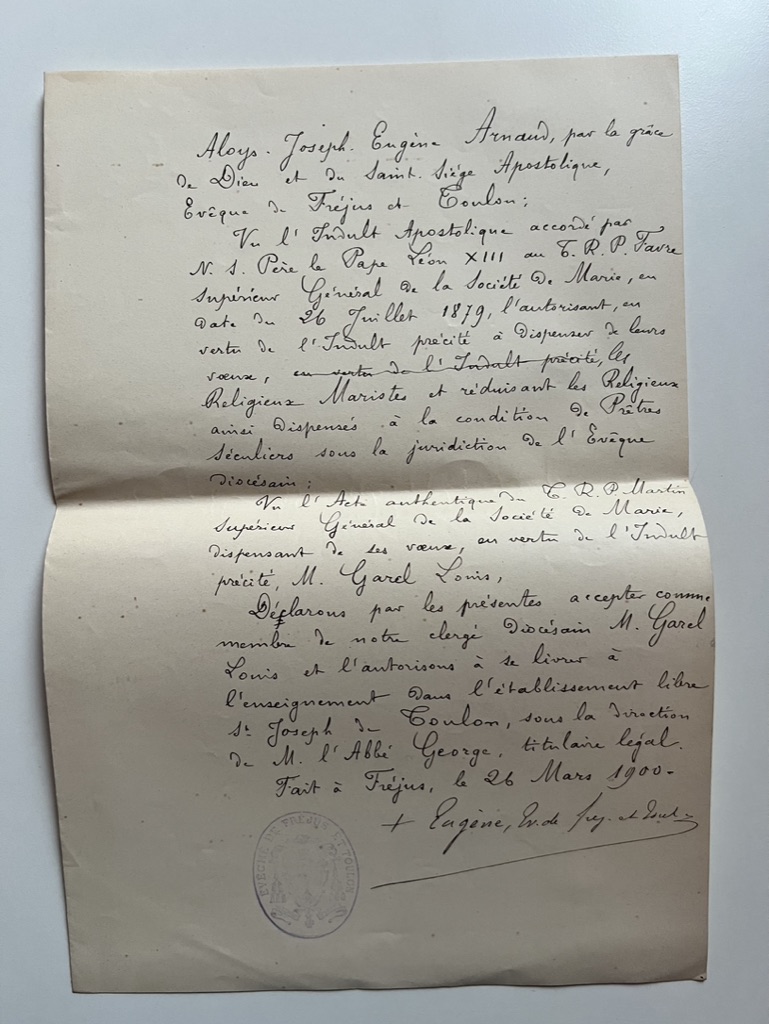 Aloys. Joseph. Eugène Arnaud, par la grâce
de Dieu et du Saint. Siége Apostolique,
Evêque de Fréjus et Toulon;
Vu l'Indult Apostolique accordé par
N. S. Père le Pape Léon XIII au T. R. P. Favre
Supérieur Général de la Société de Marie, en
date du 26 Juillet 1879, l'autorisant, en
vertu de l'Indult précité à dispenser de leurs
vœux, en vertu de l'Indult précité, les
Religieux Maristes et réduisant les Religieux
ainsi dispensés à la condition de Prêtres
séculiers sous la juridiction de l'Evêque
diocésain;
Vu l'Acte authentique du T. R. P. Martin
Supérieur Général de la Société de Marie,
dispensant de ses vœux, en vertu de l'Indult
précité, M. Garel Louis,
Déclarons par les présentes accepter comme
membre de notre clergé diocésain M. Garel
Louis et l'autorisons à se livrer à
l'enseignement dans l'établissement libre
St Joseph de Toulon, sous la direction
de M. l'Abbé George, titulaire légal.
Fait à Fréjus, le 26 Mars 1900-
+ Eugène, Ev. de Frej. et Toul.
EVÊCHÉ DE FRÉJUS ET TOULON